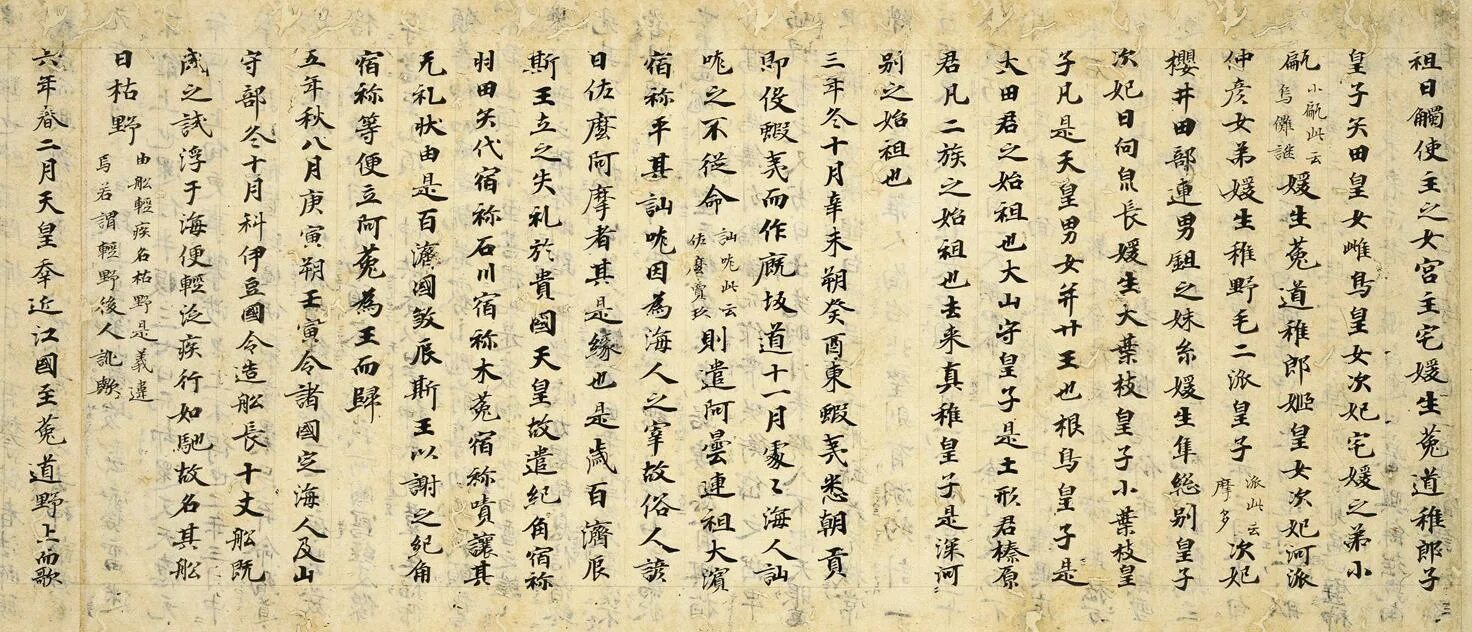 祖日觸使主之女宮主宅媛生菟道稚郎子
皇子矢田皇女雌鳥皇女次妃宅媛之弟小
甂小甂此云烏儺謎媛生菟道稚郎姬皇女次妃河派
仲彦女弟媛生稚野毛二派皇子派此云摩多次妃
櫻井田部連男鉏之妹糸媛生隼総別皇子
次妃日向泉長媛生大葉枝皇子小葉枝皇
子凡是天皇男女并廿王也根鳥皇子是
大田君之始祖也大山守皇子是土形君榛原
君凡二族之始祖也去来真稚皇子是深河
別之始祖也
三年冬十月辛未朔癸酉東蝦夷悉朝貢
即役蝦夷而作厩坂道十一月處〻海人訕
哤之不從命訕哤此云佐麼賣玖則遣阿曇連祖大濱
宿祢平其訕哤因為海人之宰故俗人諺
曰佐麼阿摩者其是緣也是歲百濟辰
斯王立之失礼於貴國天皇故遣紀角宿祢
羽田矢代宿祢石川宿祢木菟宿祢嘖讓其
无礼状由是百濟國敓辰斯王以謝之紀角
宿祢等便立阿菟為王而歸
五年秋八月庚寅朔壬寅令諸國定海人及山
守部冬十月科伊豆國令造舩長十丈舩既
成之試浮于海便輕泛疾行如馳故名其舩
曰枯野由舩輕疾名枯野是義違焉若謂輕野後人訛歟
六年春二月天皇幸近江國至菟道野上而歌